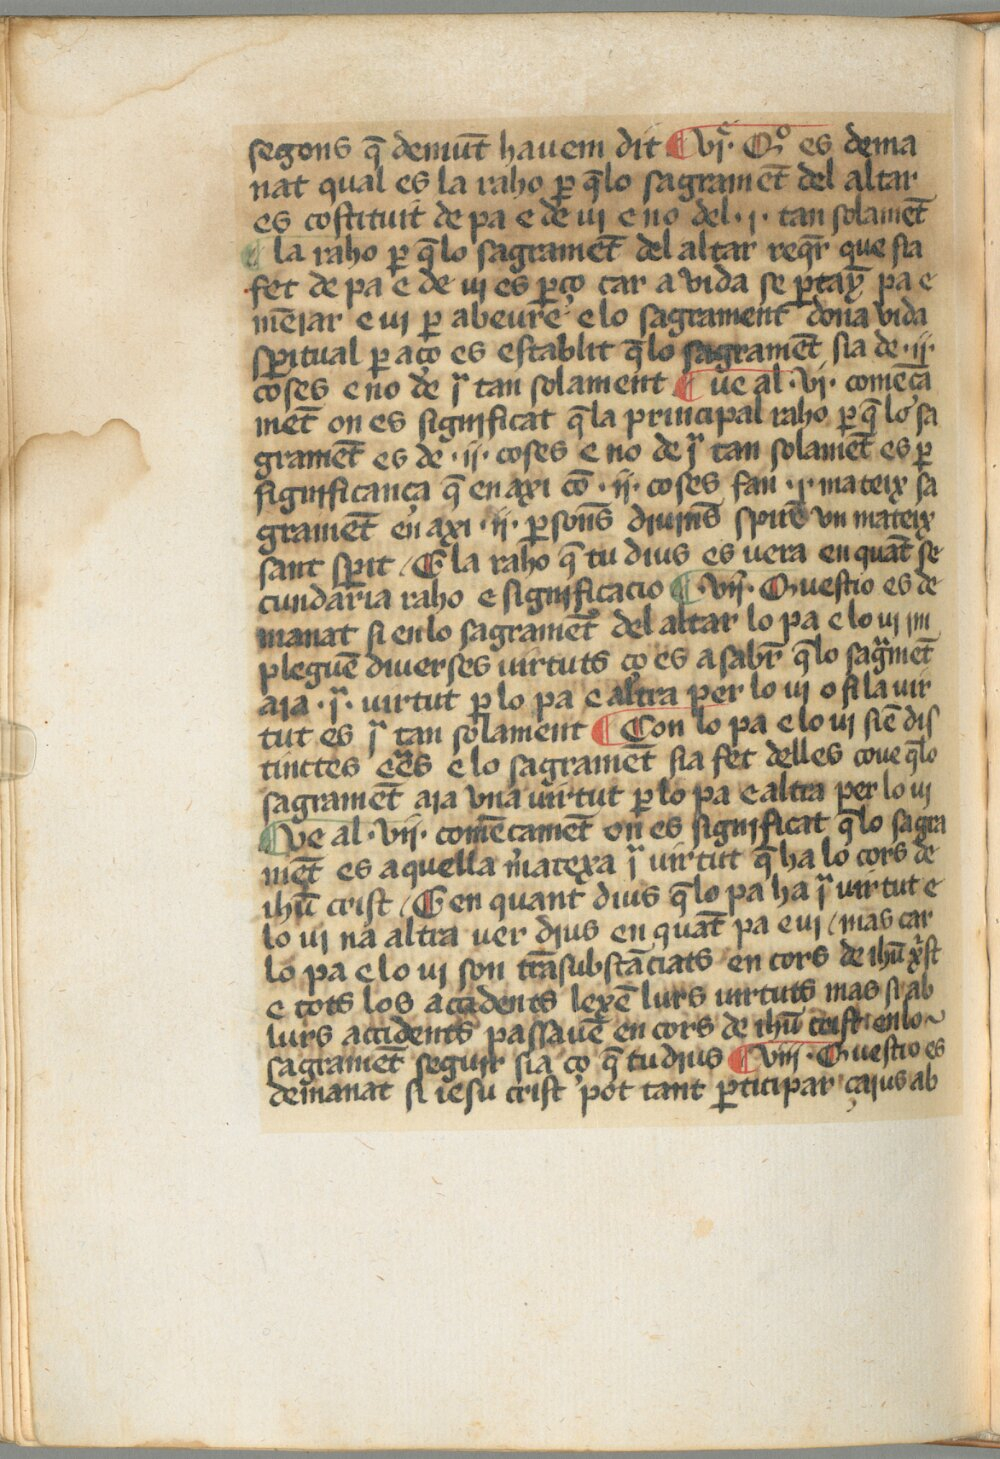 segons q̄ demūt havem dit ¶ vj.ª Qº es dema
nat qual es la raho p̱ q̄lo sagramēt del altar
es costituit de pa e de vi e no del .i. tan solamēt
¶ la raho p̱ q̄lo sagramēt del altar reqr̄ que sia
fet de pa e de vi es p̱ço car a vida se p̱tay̅ pa e
mēiar e vi p̱ abeure e lo sagrament dona vida
sp̄itual p̱ aço es establit q̄lo sagramēt sia de .ij.
coses e no de .jª tan solament ¶ Ve al .vj. comēça
mēt on es significat q̄la principal raho p̱ q̄ lo sa
gramēt es de .ij. coses e no de .jª tan solamēt es p̱
significança q̄ en axi cō .ij. coses fan .i. mateix sa
gramēt en axi .ij. p̱sons diuins spirē vn mateix
sant sp̄it / E la raho q̄ tu dius es vera en quāt se
cundaria raho e significacio ¶ .vij.ª Questio es de
manat si en lo sagramēt del altar lo pa e lo vi im
pleguē diverses virtuts ço es a sabr̄ q̄lo sagªmēt
aia .jª. virtut p̱ lo pa e altra per lo vi o si la vir
tut es jª tan solament ¶ Con lo pa e lo vi siē dis
tinctes eēs e lo sagramēt sia fet delles cove q̄lo
sagramēt aia vna virtut p̱ lo pa e altra per lo vi
¶ Ve al .vij. comēcamēt on es significat q̄ lo sagra
mēt es aquella matexa jª virtut q̄ ha lo cors de
ihū crist / E en quant dius q̄ lo pa ha jª virtut e
lo vi na altra ver dius en quāt pa e vi / mas car
lo pa e lo vi son trāsubstāciats en cors de ihū x̄st
e tots los accidents lexē lurs virtuts mas si ab
lurs accidents passavē en cors de ihū crist en lo
sagramēt seguir sia ço q̄ tu dius ¶ viij.ª Questio es
demanat si iesu crist pot tant p̱ticipar çaius ab